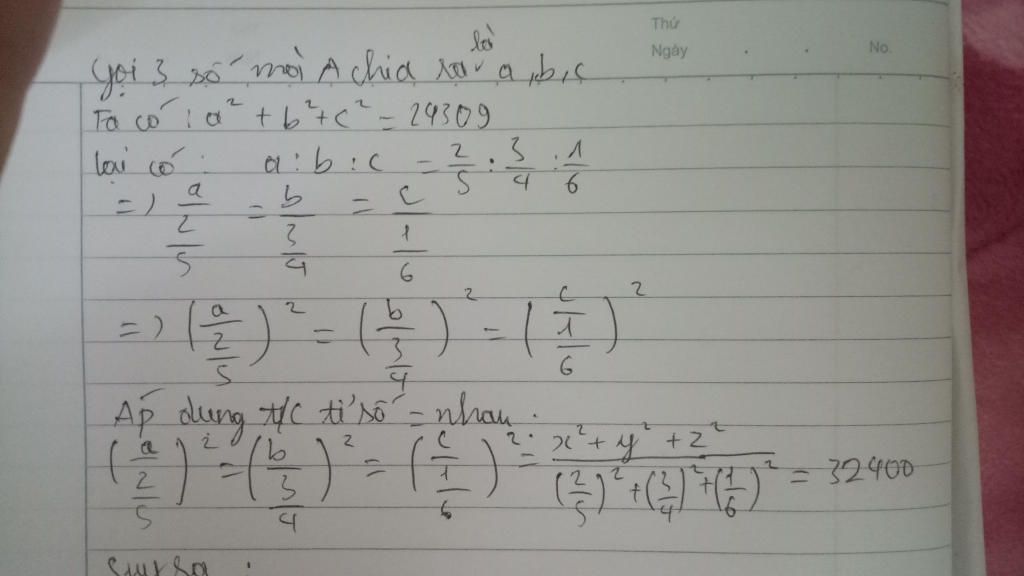 Thứ
Ngày . . No.
Gọi 3 số mà A chia ra là a, b, c
Ta có : a² + b² + c² = 24309
lại có : a : b : c = 2/5 : 3/4 : 1/6
=) a/(2/5) = b/(3/4) = c/(1/6)
=) (a/(2/5))² = (b/(3/4))² = (c/(1/6))²
Áp dụng t/c tỉ số = nhau :
(a/(2/5))² = (b/(3/4))² = (c/(1/6))² = (x² + y² + z²)/((2/5)² + (3/4)² + (1/6)²) = 32400
Suy ra :